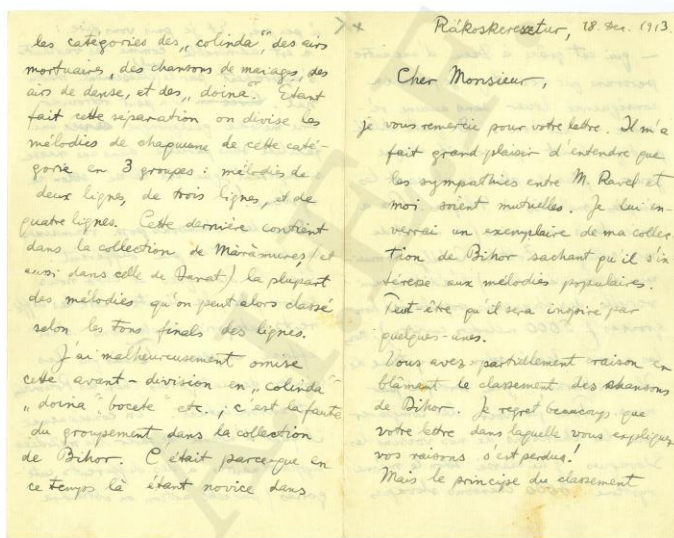 les catégories des „colinda", des airs
mortuaires, des chansons de mariages, des
airs de danse, et des „doina". Étant
fait cette séparation on divise les
mélodies de chaqu'une de cette caté-
gorie en 3 groupes: mélodies de
deux lignes, de trois lignes, et de
quatre lignes. Cette dernière contient
dans la collection de Máramureş (et
aussi dans celle de Banat) la plupart
des mélodies qu'on peut alors classé
selon les tons finals des lignes.
J'ai malheureusement omise
cette avant-division en „colinda"
„doina", bocete etc.; c'est la faute
du groupement dans la collection
de Bihor. C'était parceque en
ce temps là étant novice dans
Rákoskeresztur, 18. dec. 1913.
Cher Monsieur,
je vous remercie pour votre lettre. Il m'a
fait grand plaisir d'entendre que
les sympathies entre M. Ravel et
moi soient mutuelles. Je lui en-
verrai un exemplaire de ma collec-
tion de Bihor sachant qu'il s'in
térese aux mélodies populaires.
Peut-être qu'il sera inspiré par
quelques-unes.
Vous avez partiellement raison en
blâment le classement des chansons
de Bihor. Je regret beaucoup que
votre lettre dans laquelle vous expliquez
vos raisons s'est perdue!
Mais le principe du classement